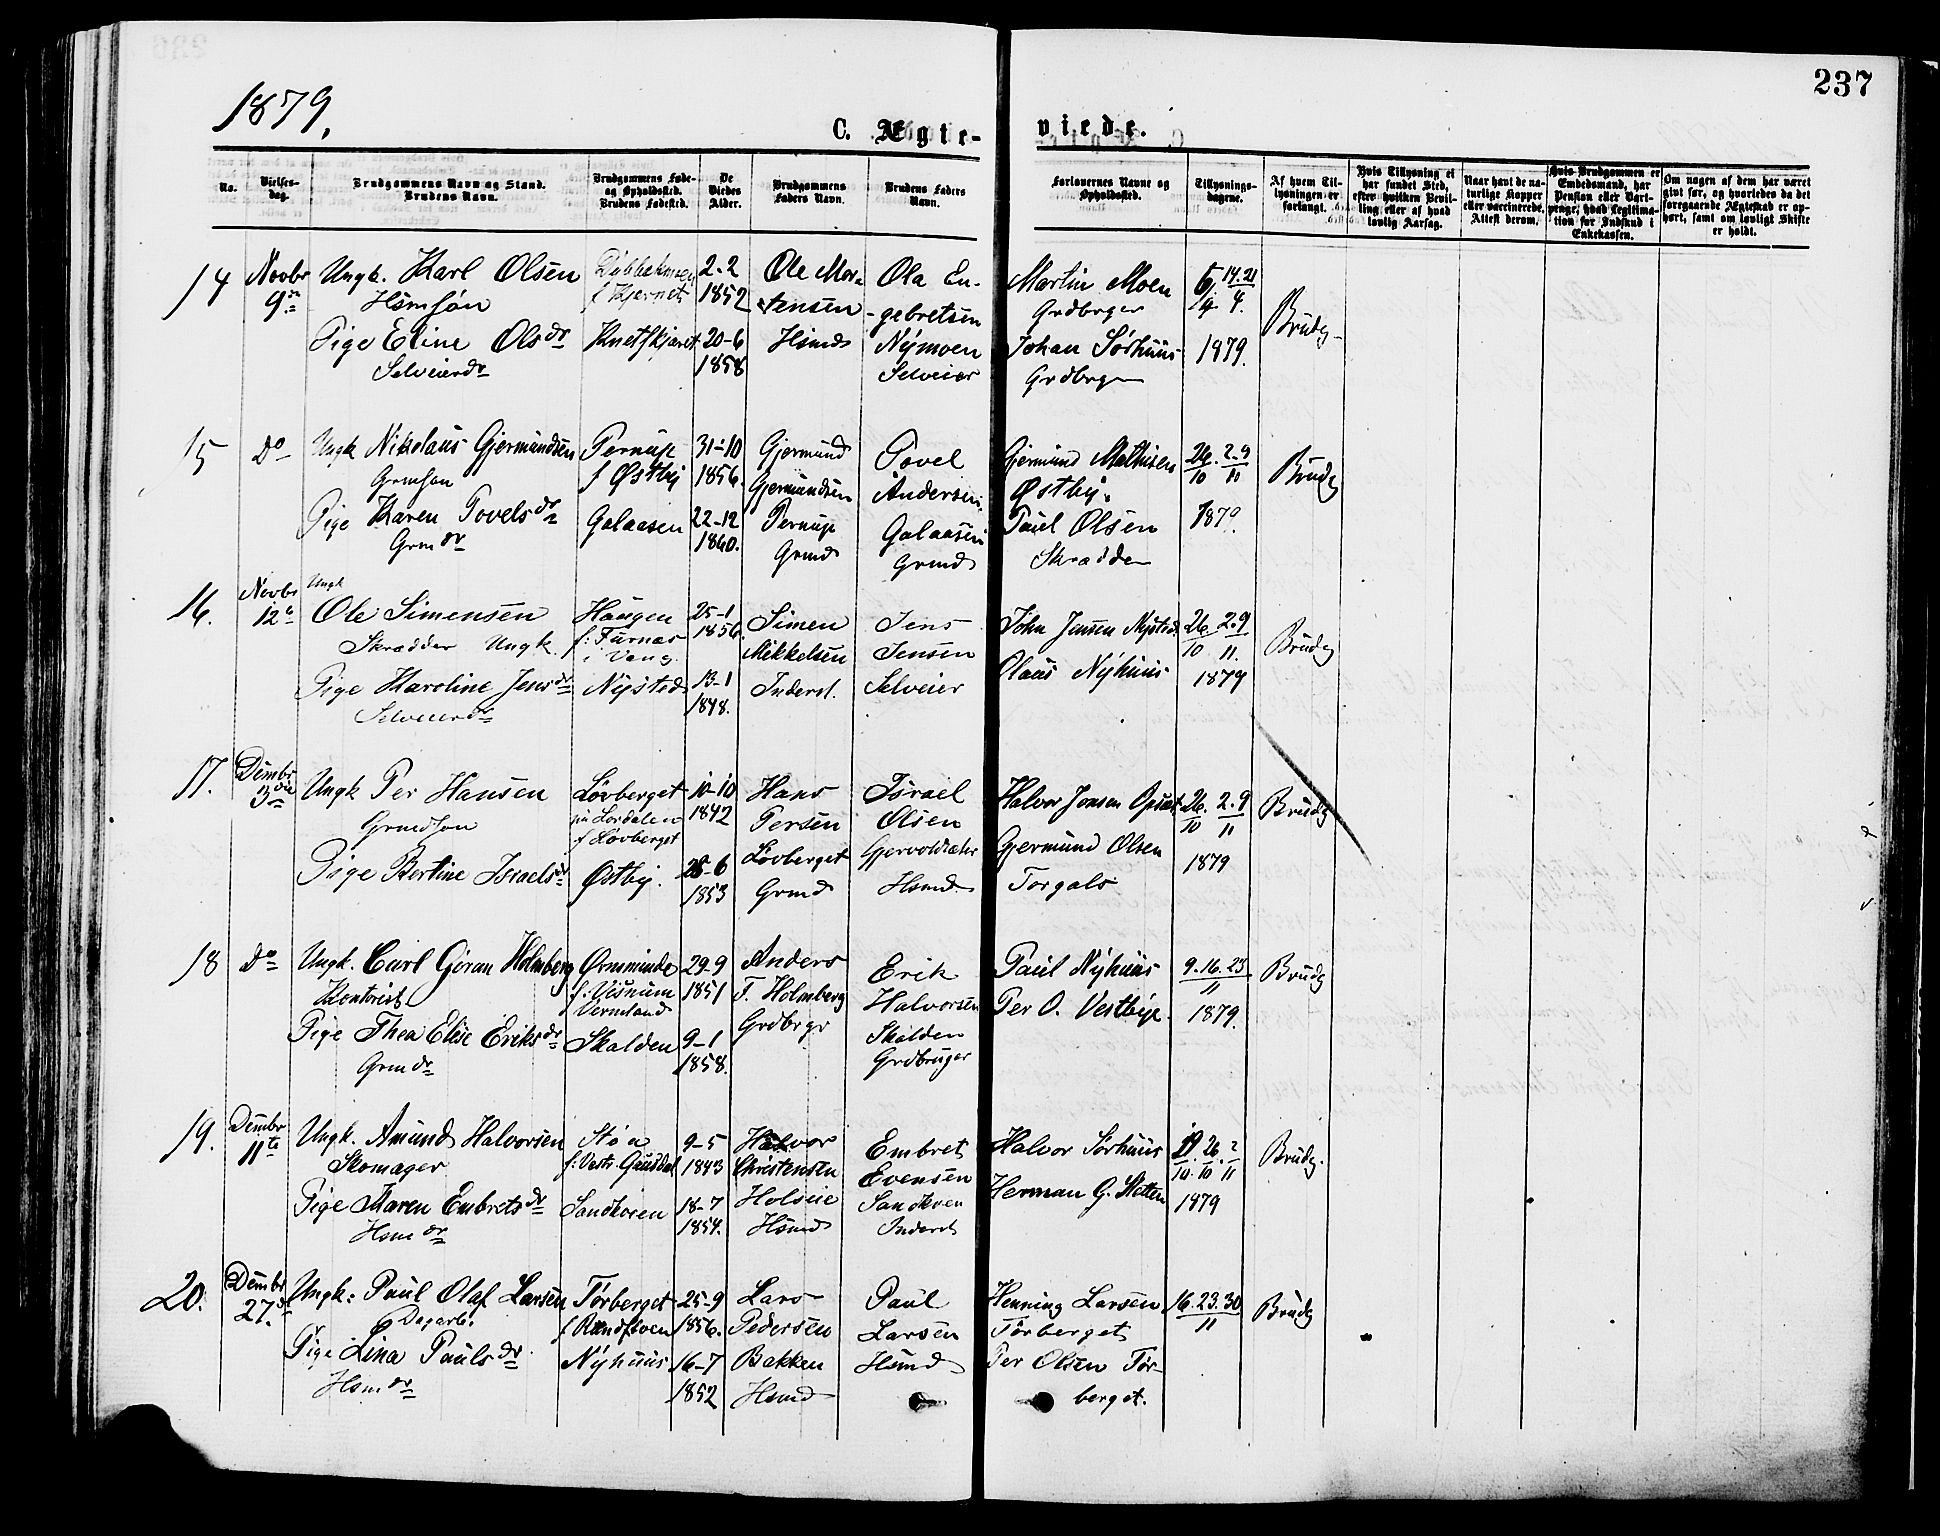 237
1879.
C. Ægte- viede.
No.
Vielses-
dag.
Brudgommens Navn og Stand.
Brudens Navn.
Brudgommens Føde-
og Opholdssted.
Brudens Fødested.
De
Viedes
Alder.
Brudgommens
Faders Navn.
Brudens Faders
Navn.
Forlovernes Navne og
Opholdssted.
Tillysnings-
dagene.
Af hvem Til-
lysningen er
forlangt.
Hvis Tillysning ei
har fundet Sted,
efter hvilken Bevil-
ling eller af hvad
lovlig Aarsag.
Naar havt de na-
turlige Kopper
eller vaccinerede.
Attest derom.
Hvis Brudgommen er
Embedsmand, har
Pension eller Vart-
penge, hvad Legitima-
tion for Indskud i
Enkekassen.
Om nogen af dem har været
gift før, og hvorledes da det
foregaaende Ægteskab er op-
hørt, samt om lovligt Skifte
er holdt.
14
Novbr
9de
Ungk. Karl Olsen
Hsmsøn
Pige Eline Olsdr
Selveierdr
2-2
1852
20-6
1858
Ole Mor-
tensen
Hsmd
Ola En-
gebretsen
Nymoen
Selveier
Martin Moen
Grdbrger
Johan Sørhuus
Grdbrger
14.21
1879.
Brudg
15
Do
Ungk Nikolaus Gjermundsen
Grmsøn
Pige Karen Povelsdr
Grmdr
Pernup
f Østby
Galaasen
31-10
1856.
22-12
1860.
Gjermund
Gjermundsen
Pernup
Grmd
Povel
Andersen
Galaasen
Grmd
Gjermund Mathisen
Østby.
Paul Olsen
Skrædder
26. 2.9
10 11
1879.
Brudg
16.
Novbr
12te
Ungk
Ole Simensen
Skrædder Ungk.
Pige Karoline Jensdr
Selveierdr
Haugen
f: Furnæs
i Vang
Nysted
25-1
1856.
13-1
1848.
Simen
Mikkelsen
Inderst.
Jens
Jensen
Selveier
John Jensen Nysted
Olaus Nyhuus
26. 2.9
10 11.
1879
Brudg
17.
Dcmbr
3die
Ungk Per Hansen
Grmdsøn
Pige Bertine Israelsdr
Løvberget
f Løvberget
Østby.
10-10
1842
-6
1853
Hans
Persen
Løvberget
Grmd
Israel
Olsen
Hsmd
Halvor Jonsen Opsæt
Gjermund Olsen
Torgals
26. 2.9
10 11
1879
Brudg
18
Do
Ungk. Carl Göran Holmberg
Kontorist
Pige Thea Elise Eriksdr
Grmdr
f: Visnum
Vermland
Skalden
29-9
1851
9-1
1858.
Anders
F. Holmberg
Grdbrgr
Erik
Halvorsen
Skalden
Grdbruger
Paul Nyhuus
Per O. Vestby
9.16.23
11
1879.
Brudg
19.
Dcmbr
11te
Ungk. Amund Halvorsen
Skomager
Pige Maren Embretsdr
Hsmdr
Støa
f: Vestr. Gausdal
Sandkvien
9-5
1843
18-7
1854.
Halvor
Christensen
Holseie
Hsmd
Embret
Evensen
Sandkven
Inderst
Halvor Sørhuus
Herman G. Sletten
19. 26. 2
10. 10. 11
1879
Brudg.
20.
Dcmbr
27de
Ungk: Paul Olaf Larsen
Dagarb.
Pige Lina Paulsdr
Hsmdr
Tørberget
Nyhuus
25-9
1856.
16-7
1852
Lars
Pedersen
Bakken
Hsmd
Paul
Larsen
Hsmd
Henning Larsen
Tørberget
Per Olsen Tør-
berget.
16.23.30
11
Brudg